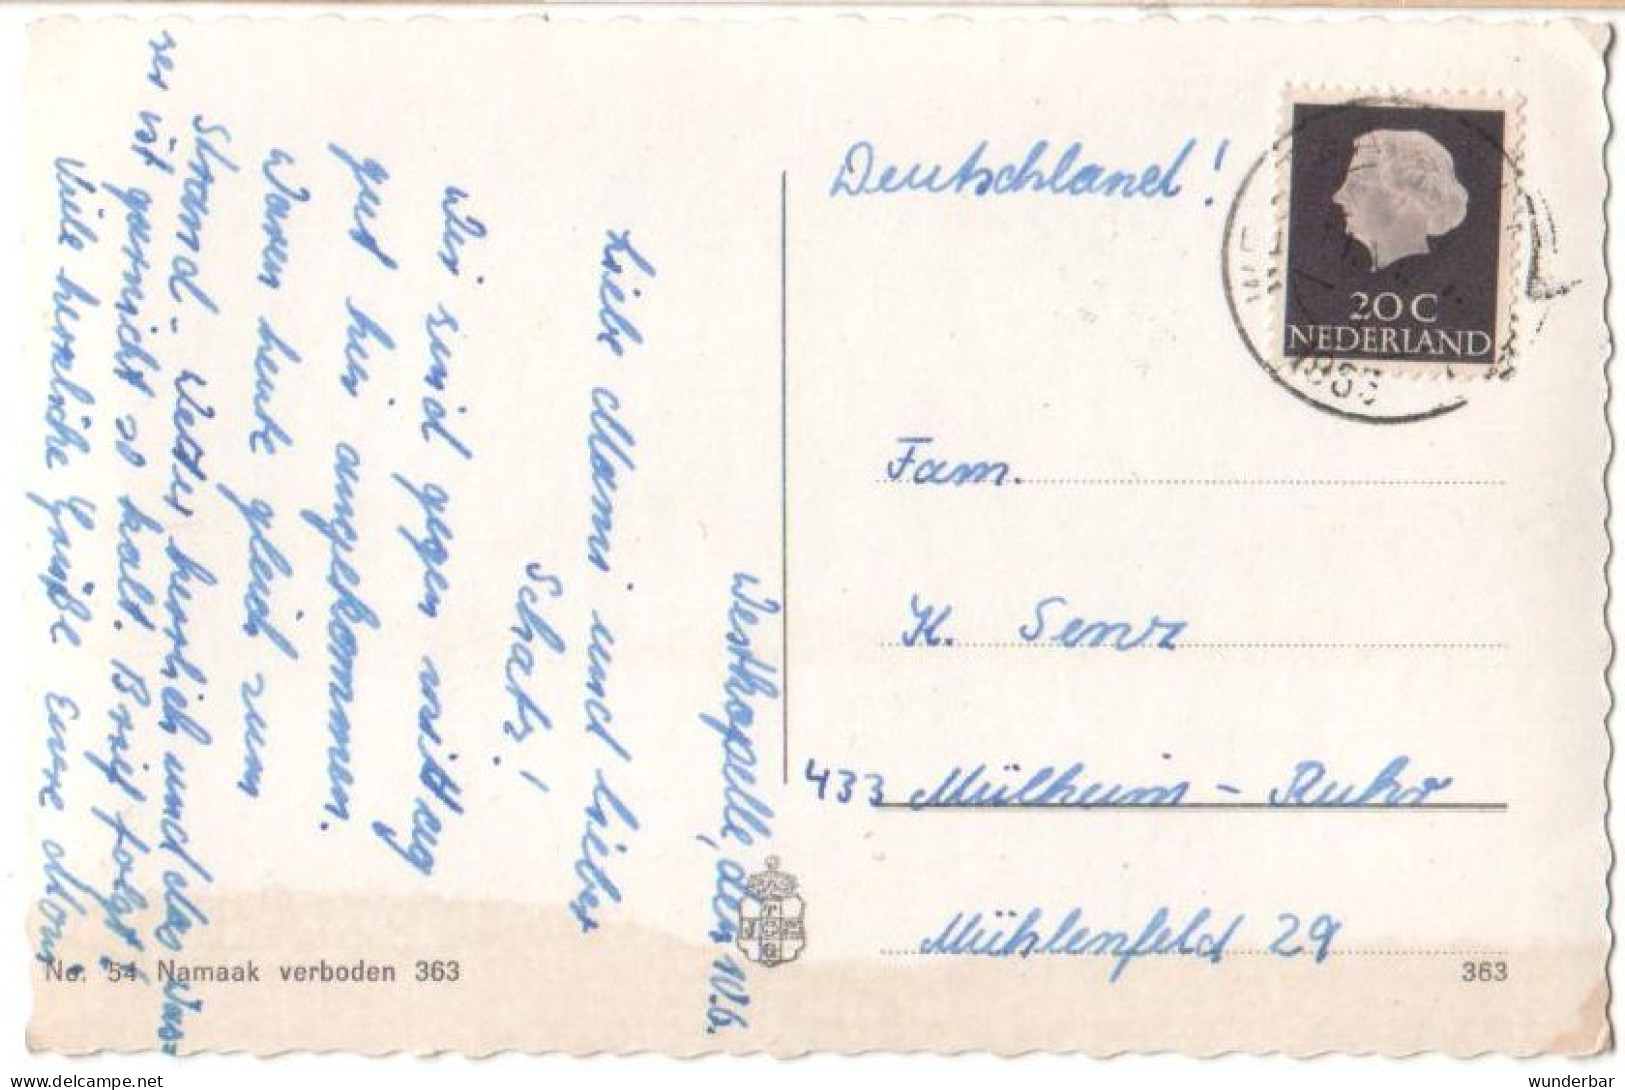 Westkapelle, den 10.6.
Liebe Mami und lieber
Schatz!
Wir sind gegen mittag
gut hier angekommen.
Waren heute gleich zum
Strand. Wetter herrlich und das Was=
ser ist garnicht so kalt. Brief folgt!
Viele herzliche Grüße Eure
Deutschland!
20 C
NEDERLAND
Fam.
K.
433 Mülheim - Ruhr
Mühlenfeld 29
No. 54 Namaak verboden 363
363
delcampe.net
wunderbar